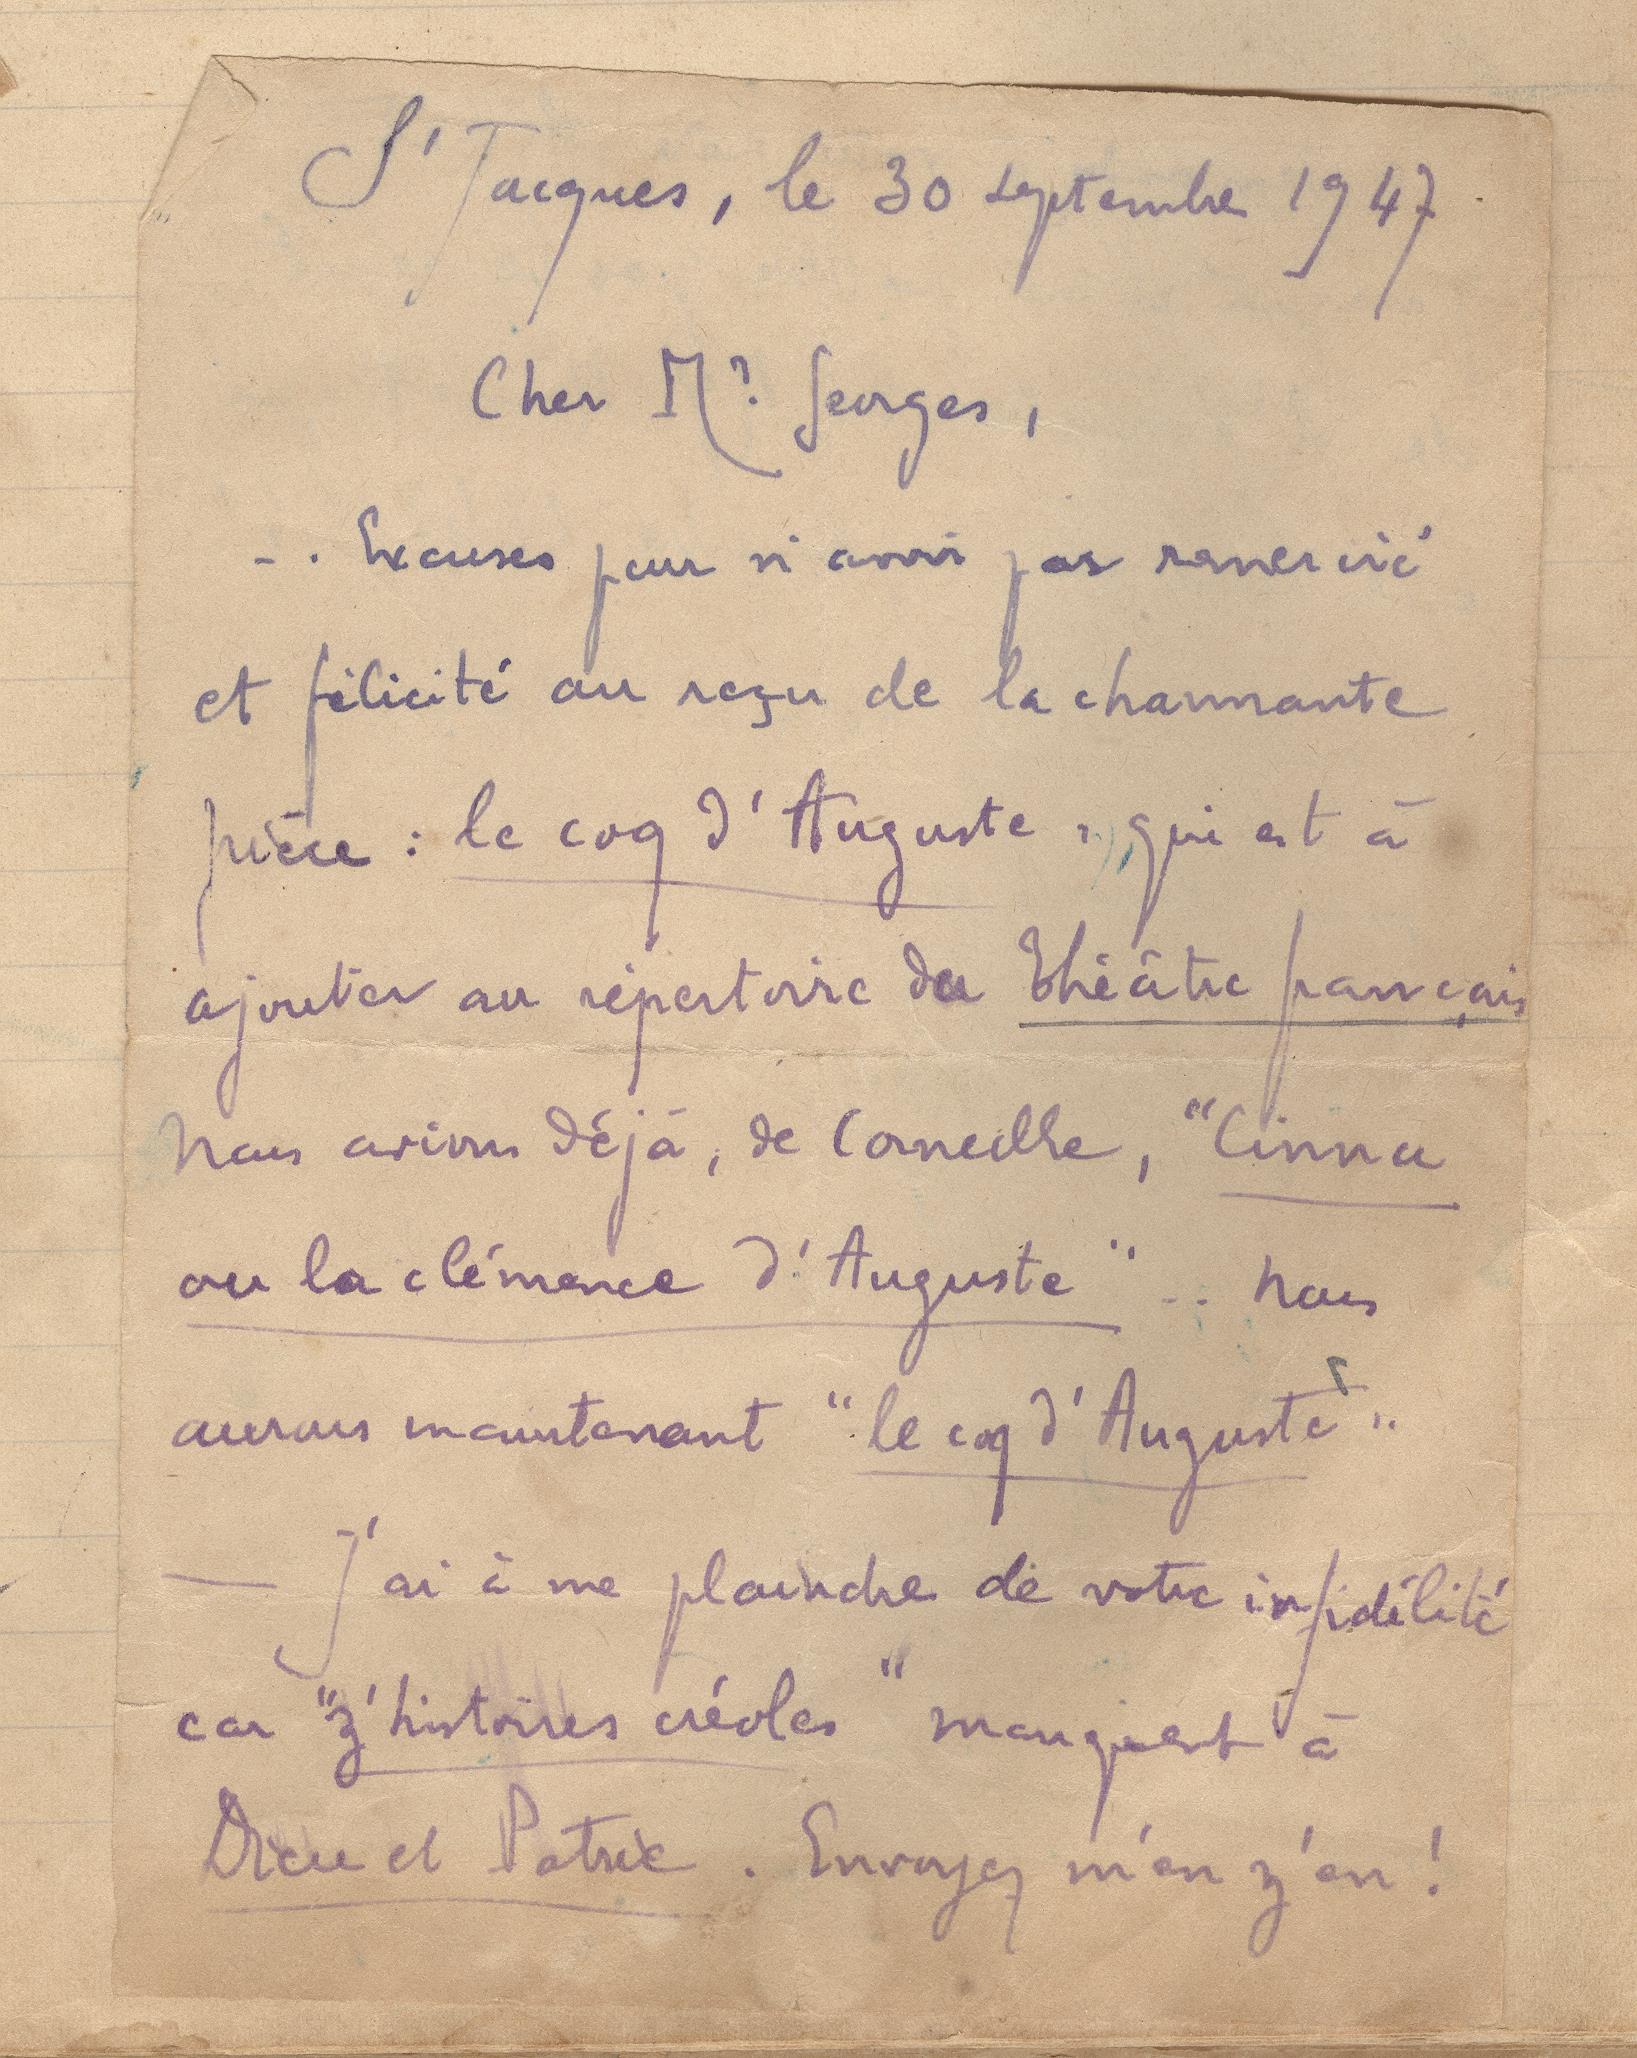 St Jacques, le 30 septembre 1947
Cher Mr. Georges,
- . Excuses pour n'avoir pas remercié
et félicité au reçu de la charmante
pièce : le coq d'Auguste", qui est à
ajouter au répertoire du théâtre français
Nous avions déjà, de Corneille, "Cinna
ou la clémence d'Auguste" .. nous
aurons maintenant "le coq d'Auguste".
— J'ai à me plaindre de votre infidélité
car "z'histoires créoles" manquent à
Dieu et Patrie. Envoyez m'en z'en !